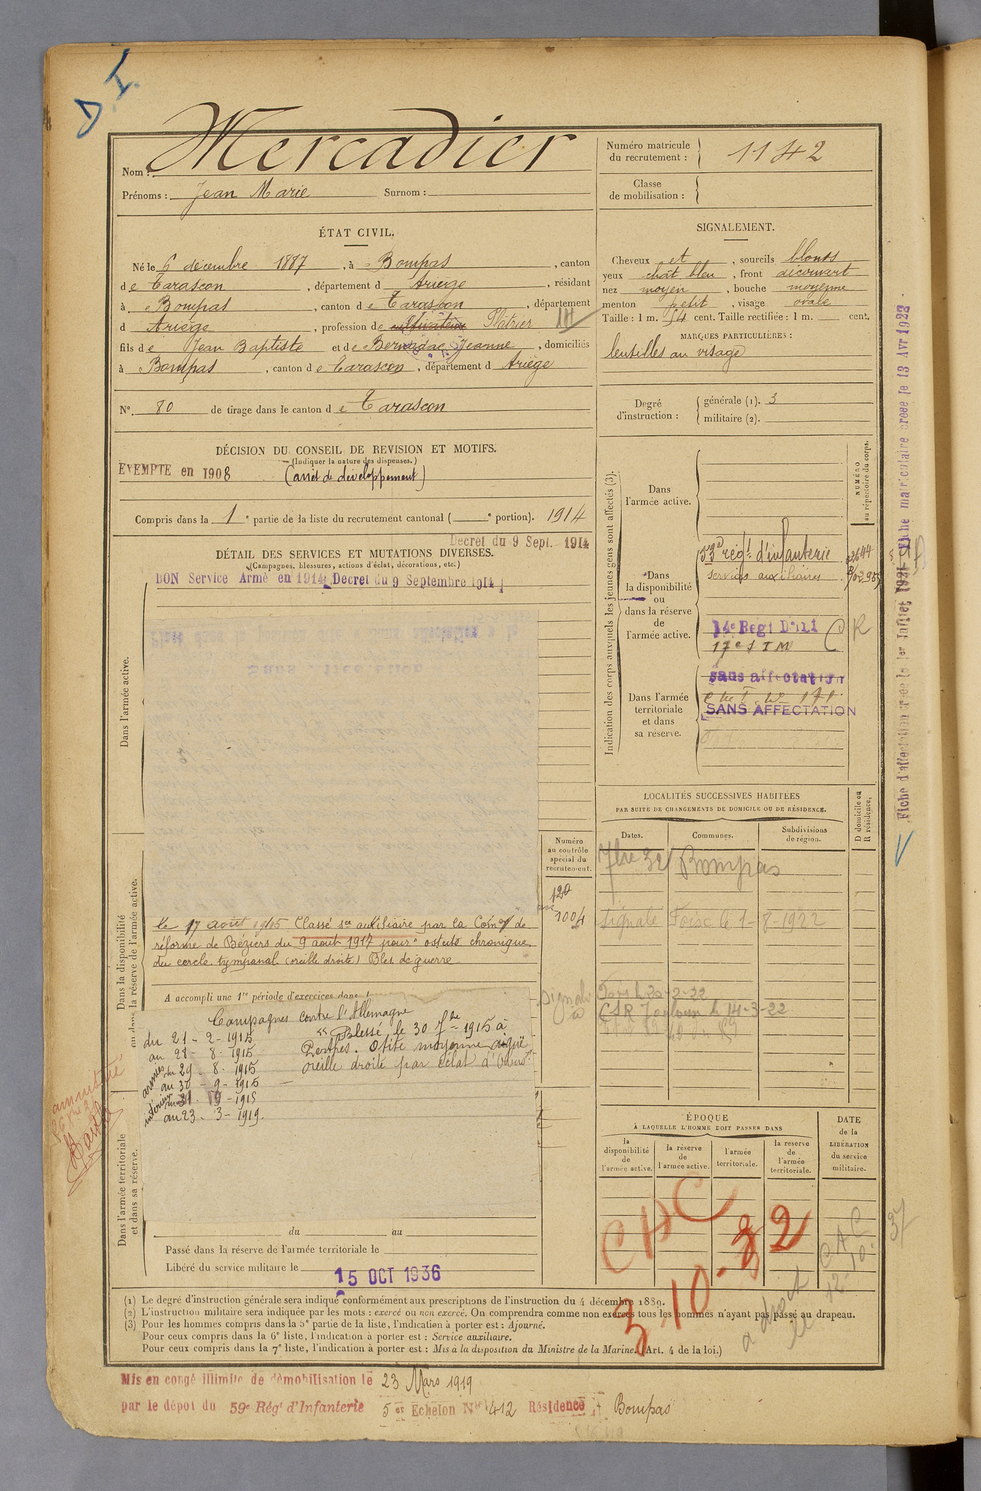 D. I.
Nom : Mercadier
Prénoms : Jean Marie Surnom :
ÉTAT CIVIL.
Né le 6 décembre 1887, à Bompas, canton
de Tarascon, département d Ariège, résidant
à Bompas, canton de Tarascon, département
d Ariège, profession de cultivateur Plâtrier
fils de Jean Baptiste et de Jeanne, domiciliés
à Bompas, canton de Tarascon, département d Ariège
N° 80 de tirage dans le canton de Tarascon
DÉCISION DU CONSEIL DE REVISION ET MOTIFS.
(Indiquer la nature des dispenses.)
EXEMPTE en 1908 (arrêt de développement)
Compris dans la 1e partie de la liste du recrutement cantonal ( e portion). 1914
Décret du 9 Sept. 1914
DÉTAIL DES SERVICES ET MUTATIONS DIVERSES.
(Campagnes, blessures, actions d'éclat, décorations, etc.)
BON Service Armé en 1914 Décret du 9 Septembre 1914
Dans l'armée active.
Dans la disponibilité
ou dans la réserve de l'armée active.
le 17 août 1915 Classé sce auxiliaire par la Com de
réforme de Béziers du 9 août 1917 pour ostéite chronique
du cercle tympanal (oreille droite) Bles de guerre
A accompli une 1re période d'exercices dans l
Campagnes contre l'Allemagne
du 21 - 2 - 1915
au 21 - 8 - 1915
du 29 . 8 . 1915
au 30 - 9 - 1915
au 23 . 3 - 1919.
Blessé le 30 7bre 1915 à
Perthes. Otite moyenne aiguë
oreille droite par éclat d'obus
Dans l'armée territoriale
et dans sa réserve.
du au
Passé dans la réserve de l'armée territoriale le
Libéré du service militaire le 15 OCT 1936
Numéro matricule
du recrutement : 1142
Classe
de mobilisation :
SIGNALEMENT.
Cheveux et, sourcils blonds
yeux chât bleu, front découvert
nez moyen, bouche moyenne
menton petit, visage ovale
Taille : 1 m. 54 cent. Taille rectifiée : 1 m. cent.
MARQUES PARTICULIÈRES :
lentilles au visage
Degré
d'instruction :
générale (1). 3
militaire (2).
Indication des corps auxquels les jeunes gens sont affectés (3).
NUMÉRO
au répertoire du corps.
Dans
l'armée active.
Dans
la disponibilité
ou
dans la réserve
de
l'armée active.
53e régt. d'infanterie
services auxiliaires
14e Regt D'inf
17e S I M
C R
Dans l'armée
territoriale
et dans
sa réserve.
sans affectation
SANS AFFECTATION
Fiche d'affectation créée le 1er Juillet 1921 Fiche matriculaire créée le 13 Avr 1922
LOCALITÉS SUCCESSIVES HABITÉES
PAR SUITE DE CHANGEMENTS DE DOMICILE OU DE RÉSIDENCE.
Dates. Communes. Subdivisions
de région.
D domicile ou
R résidence.
7bre 32 Bompas
signalé Foix le 1-8-1922
Numéro
au contrôle
spécial du
recrutement.
120
1004
ÉPOQUE
À LAQUELLE L'HOMME DOIT PASSER DANS
la
disponibilité
de
l'armée active.
la réserve
de
l'armée active.
l'armée
territoriale.
la réserve
de
l'armée
territoriale.
DATE
de la
LIBÉRATION
du service
militaire.
CAC
3.10.32
CAC
37
(1) Le degré d'instruction générale sera indiqué conformément aux prescriptions de l'instruction du 4 décembre 1889.
(2) L'instruction militaire sera indiquée par les mots : exercé ou non exercé. On comprendra comme non exercés tous les hommes n'ayant pas passé au drapeau.
(3) Pour les hommes compris dans la 5e partie de la liste, l'indication à porter est : Ajourné.
Pour ceux compris dans la 6e liste, l'indication à porter est : Service auxiliaire.
Pour ceux compris dans la 7e liste, l'indication à porter est : Mis à la disposition du Ministre de la Marine. (Art. 4 de la loi.)
Mis en congé illimité de démobilisation le 23 Mars 1919
par le dépôt du 59e Régt d'Infanterie 5e Echelon N° 412 Résidence Bompas